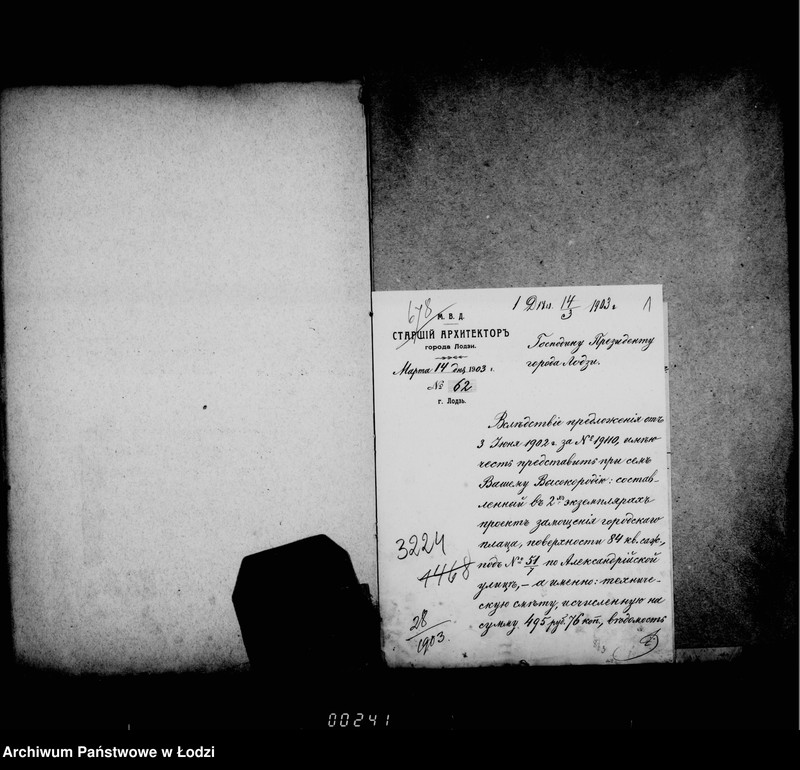 678
М. В. Д.
СТАРШІЙ АРХИТЕКТОРЪ
города Лодзи.
Марта 14 дня 1903 г.
№ 62
г. Лодзь.
14/3 1903 г.
1
Господину Президенту
города Лодзи.
Вслѣдствіе предложенія отъ
3 Іюня 1902 г. за № 19110, имѣю
честь представить при семъ
Вашему Высокородію: состав-
ленный въ 2хъ экземплярахъ
проектъ замощенія городскаго
плаца, поверхности 84 кв. саж.,
подъ № 51/1 по Александрійской
улицѣ, – а именно: техниче-
скую смѣту, исчисленную на
сумму 495 руб. 76 коп., вѣдомость
3224
4468
28/1903.
00241
Archiwum Państwowe w Łodzi